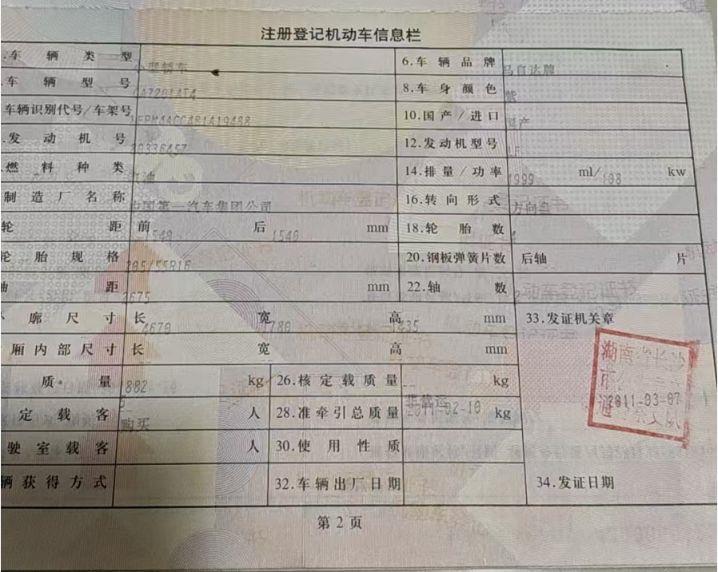 注册登记机动车信息栏
.车辆类型 小型轿车 6.车辆品牌 马自达牌
车辆型号 8.车身颜色
车辆识别代号/车架号 10.国产/进口 国产
.发动机号 20336457 12.发动机型号 LF
燃料种类 汽油 14.排量/功率 1999 ml/ 108 kw
制造厂名称 中国第一汽车集团公司 16.转向形式 方向盘
轮距 前 1540 后 1540 mm 18.轮胎数 4
轮胎规格 205/55R16 20.钢板弹簧片数 后轴 片
轴距 2675 mm 22.轴数
廓尺寸 长 4670 宽 1780 高 1435 mm 33.发证机关章
厢内部尺寸 长 宽 高 mm
质量 882 kg 26.核定载质量 kg
定载客 5 人 28.准牵引总质量 kg
驶室载客 购买 人 30.使用性质
非营运
2011-02-10
辆获得方式 32.车辆出厂日期 34.发证日期
湖南省长沙
市
2011-03-07
第2页